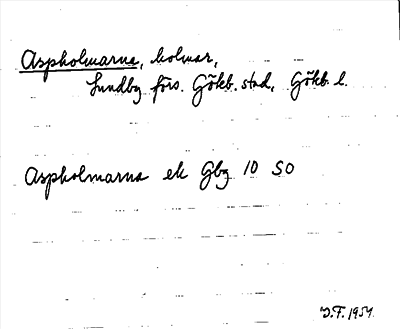 Aspholmarna, holmar,
Lundby förs. Göteb. stad, Göteb. l.
Aspholmarna ek Gbg 10 SO
I.F. 1954